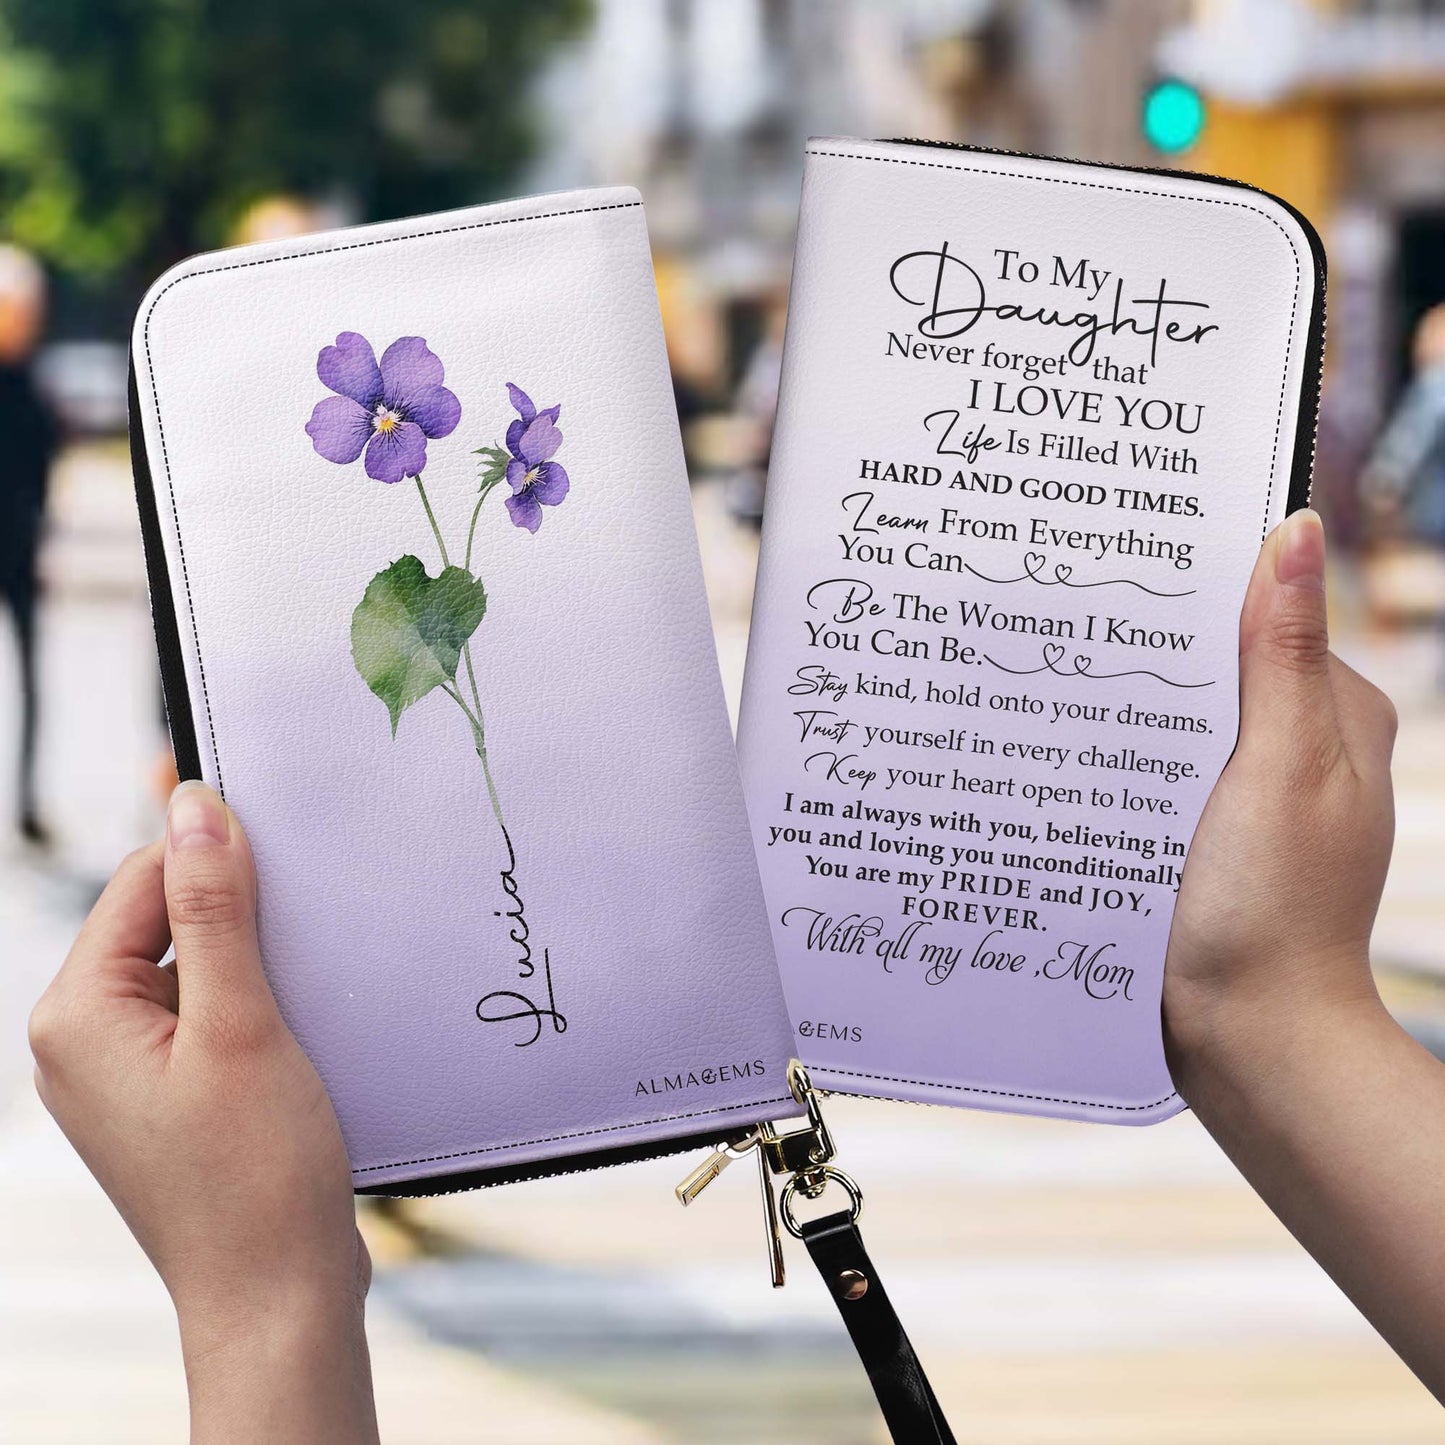 Lucia
ALMAGEMS
To My
Daughter
Never forget that
I LOVE YOU
Life Is Filled With
HARD AND GOOD TIMES.
Learn From Everything
You Can
Be The Woman I Know
You Can Be.
Stay kind, hold onto your dreams.
Trust yourself in every challenge.
Keep your heart open to love.
I am always with you, believing in
you and loving you unconditionally
You are my PRIDE and JOY,
FOREVER.
With all my love ,Mom
GEMS